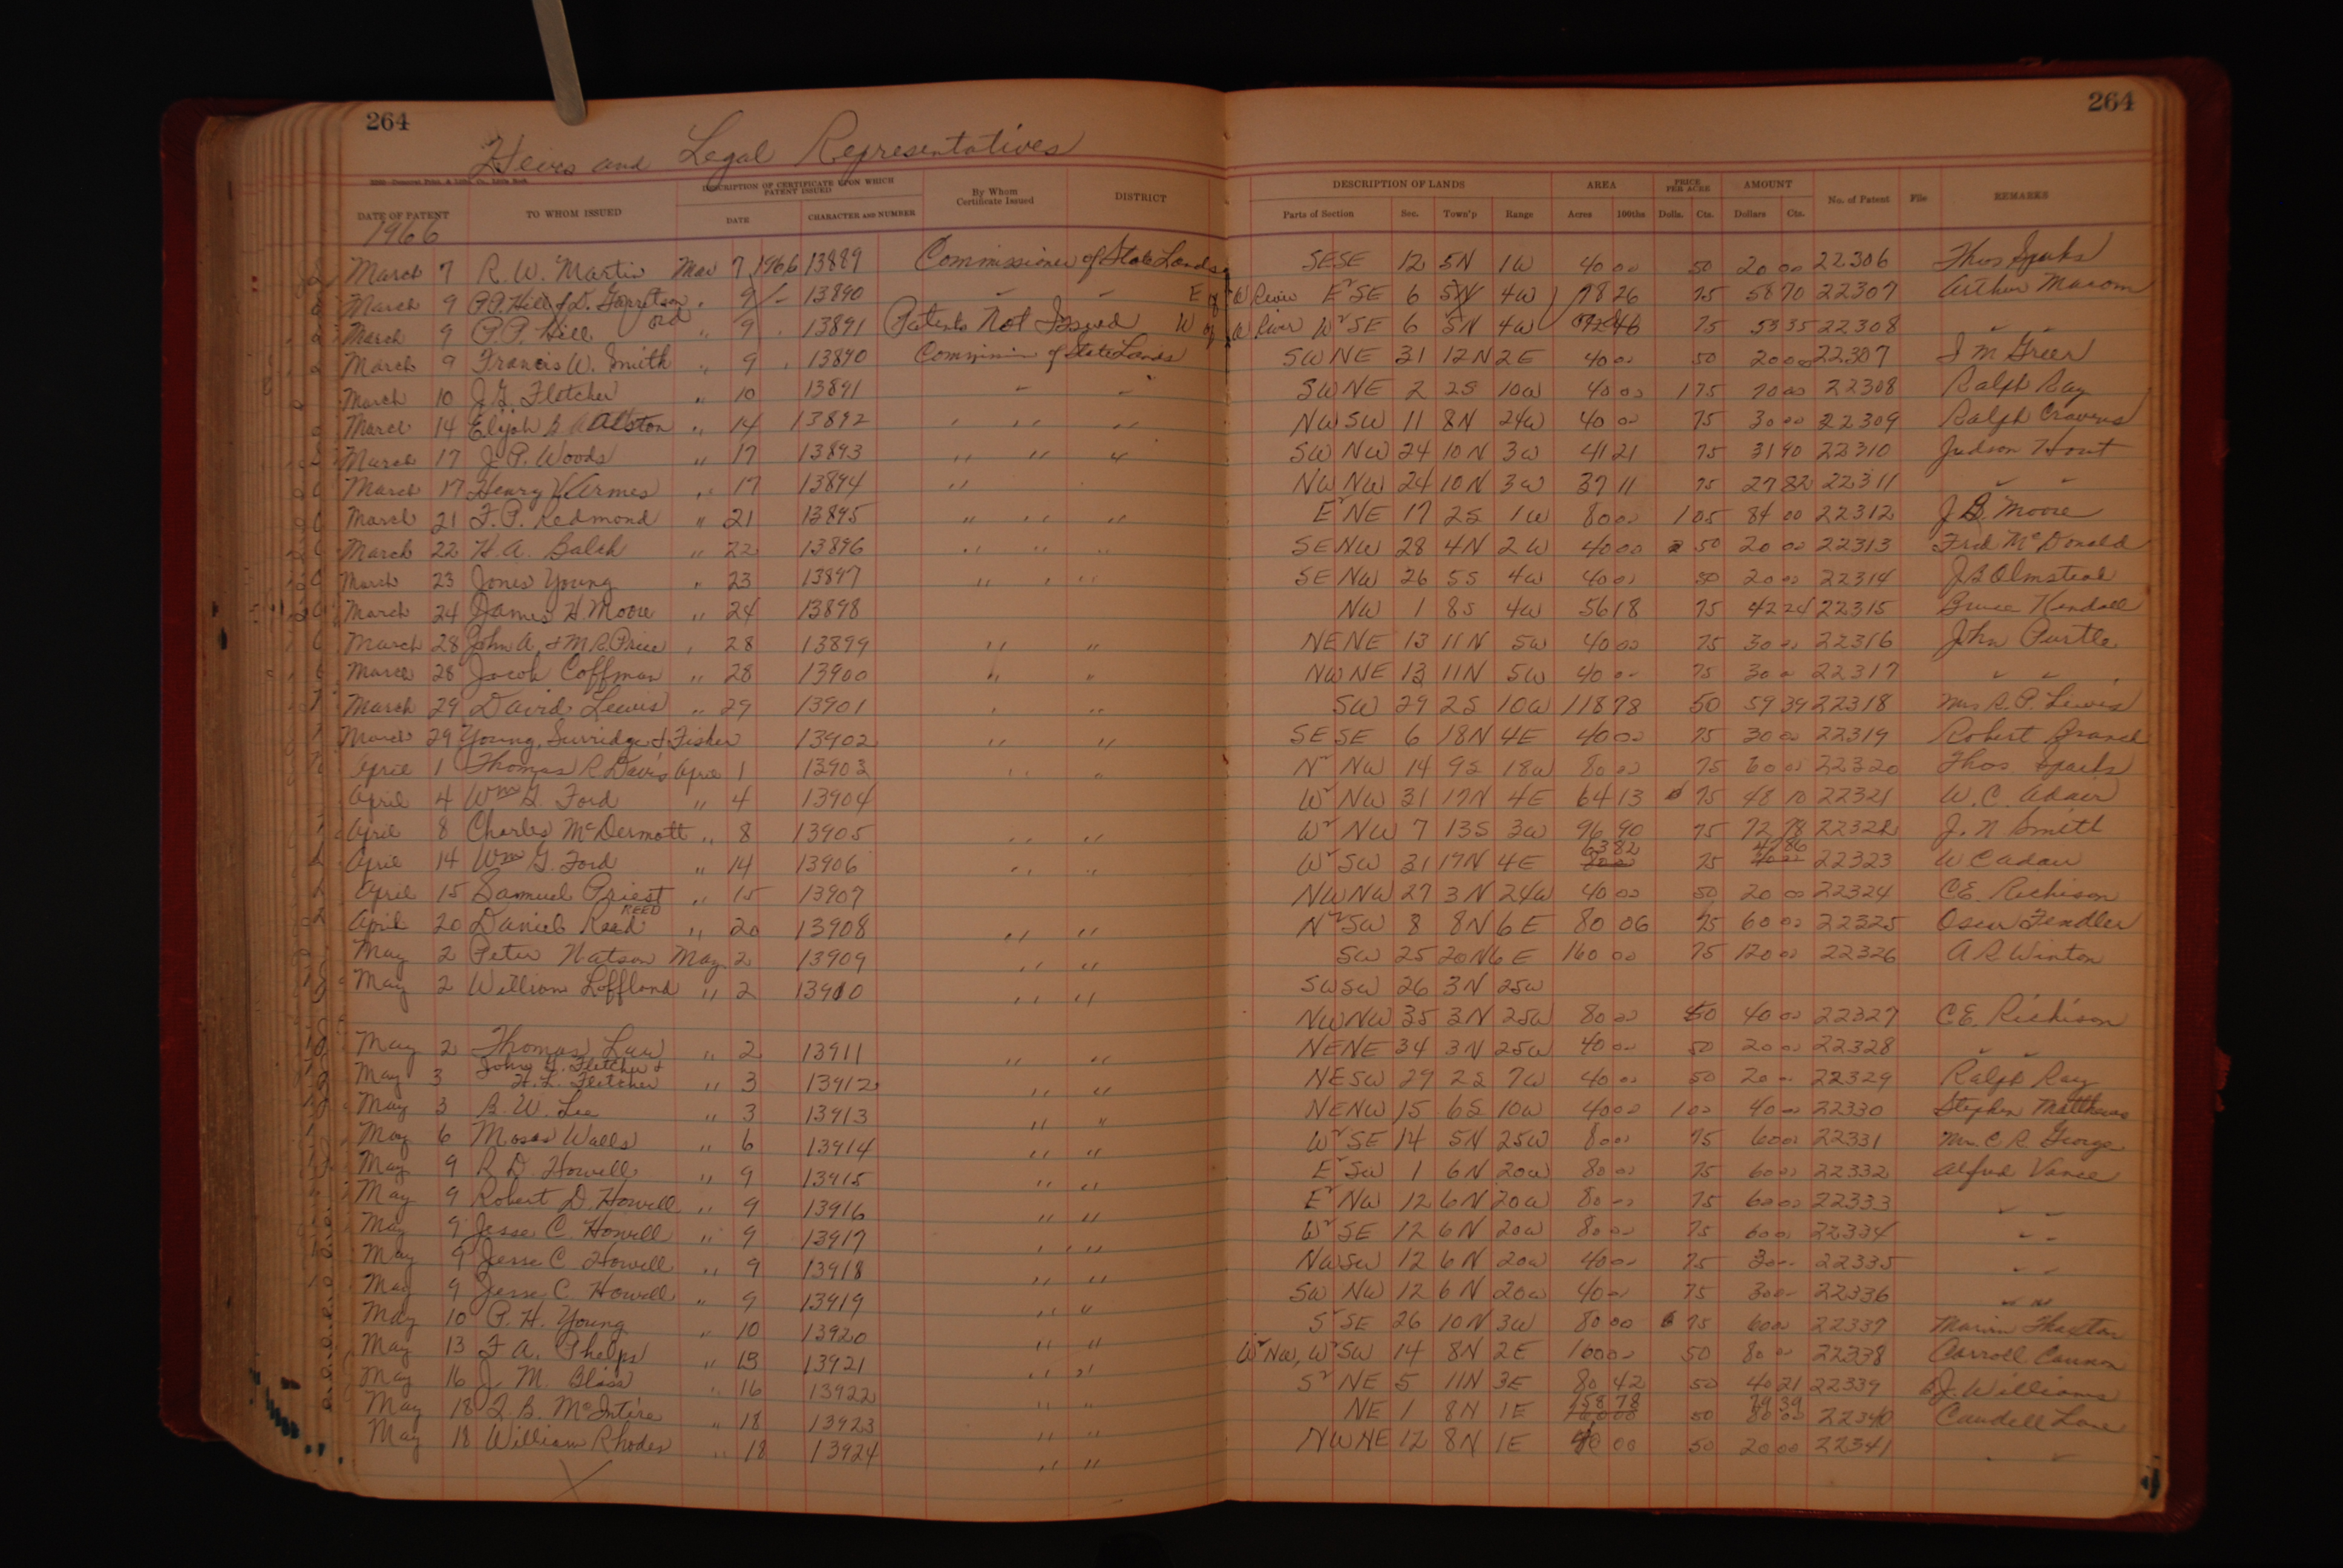 264
264
Heirs and Legal Representatives
DATE OF PATENT TO WHOM ISSUED DESCRIPTION OF CERTIFICATE UPON WHICH PATENT ISSUED DATE CHARACTER AND NUMBER By Whom Certificate Issued DISTRICT DESCRIPTION OF LANDS Parts of Section Sec. Town'p Range AREA Acres 100ths PRICE PER ACRE Dolls. Cts. AMOUNT Dollars Cts. No. of Patent File REMARKS
1966
March 7 R. W. Martin Mar 7 1966 13889 Commissioner of State Lands SESE 12 5N 1W 40 00 50 20 00 22306 Thos Sparks
March 9 P.P. Hill & D. Garretson " 9 13890 " " E of W River E²SE 6 5N 4W 78 26 75 58 70 22307 Arthur Macom
March 9 P.P. Hill " 9 13891 Patents Not Issued W of W River W²SE 6 5N 4W 75 53 35 22308 " "
March 9 Francis W. Smith " 9 13890 Commissioner of State Lands SWNE 31 12N 2E 40 00 50 20 00 22307 J M Greer
March 10 J.G. Fletcher " 10 13891 " " SWNE 2 2S 10W 40 00 1 75 70 00 22308 Ralph Ray
March 14 Elijah B Allston " 14 13892 " " " NWSW 11 8N 24W 40 00 75 30 00 22309 Ralph Cravens
March 17 J. P. Woods " 17 13893 " " " SWNW 24 10N 3W 41 21 75 31 90 22310 Judson Hout
March 17 Henry V. Armes " 17 13894 " NWNW 24 10N 3W 37 11 75 27 82 22311 " "
March 21 F. P. Redmond " 21 13895 " " " E²NE 17 2S 1W 80 00 1 05 84 00 22312 J B. Moore
March 22 H. A. Balch " 22 13896 " " " SENW 28 4N 2W 40 00 50 20 00 22313 Fred McDonald
March 23 Jones Young " 23 13897 " " " SENW 26 5S 4W 40 00 50 20 00 22314 J B Olmstead
March 24 James H. Moore " 24 13898 NW 1 8S 4W 56 18 75 42 22315 Bruce Kendall
March 28 John A. & M R Price " 28 13899 " " NENE 13 11N 5W 40 00 75 30 00 22316 John Purtle
March 28 Jacob Coffman " 28 13900 " " NWNE 13 11N 5W 40 00 75 30 00 22317 " "
March 29 David Lewis " 29 13901 " " SW 29 2S 10W 118 78 50 59 39 22318 Mrs R. P. Lewis
March 29 Young, Surridge & Fisher 13902 " " SESE 6 18N 4E 40 00 75 30 00 22319 Robert Branch
April 1 Thomas R Davis April 1 13903 " " N²NW 14 9S 18W 80 00 75 60 00 22320 Thos. Sparks
April 4 Wm G. Ford " 4 13904 W²NW 31 17N 4E 64 13 75 48 10 22321 W. C. Adair
April 8 Charles McDermott " 8 13905 " " W²NW 7 13S 3W 96 90 75 72 78 22322 J. N Smith
April 14 Wm G. Ford " 14 13906 " " W²SW 31 17N 4E 80 00 63 82 75 47 86 22323 W C Adair
April 15 Samuel Priest " 15 13907 NWNW 27 3N 24W 40 00 50 20 00 22324 CE. Richison
April 20 Daniel Reed REED " 20 13908 " " N²SW 8 8N 6E 80 06 75 60 00 22325 Oscar Fendler
May 2 Peter Hatson May 2 13909 " " SW 25 20N 6E 160 00 75 120 00 22326 A R Winton
May 2 William Loffland " 2 13910 " " SWSW 26 3N 25W
NWNW 35 3N 25W 80 00 50 40 00 22327 CE. Richison
May 2 Thomas Law " 2 13911 " " NENE 34 3N 25W 40 00 50 20 00 22328 " "
May 3 John G. Fletcher & H. L. Fletcher " 3 13912 " " NESW 29 2S 7W 40 00 50 20 00 22329 Ralph Ray
May 3 B. W. Lee " 3 13913 " " NENW 15 6S 10W 40 00 1 00 40 00 22330 Stephen Matthews
May 6 Moses Walls " 6 13914 " " W²SE 14 5N 25W 80 00 75 60 00 22331 Mrs. C. R. George
May 9 R D. Howell " 9 13915 " " E²SW 1 6N 20W 80 00 75 60 00 22332 Alfred Vance
May 9 Robert D. Howell " 9 13916 " " E²NW 12 6N 20W 80 00 75 60 00 22333 " "
May 9 Jesse C. Howell " 9 13917 " " W²SE 12 6N 20W 80 00 75 60 00 22334 " "
May 9 Jesse C Howell " 9 13918 " " NWSW 12 6N 20W 40 00 75 30 00 22335 " "
May 9 Jesse C. Howell " 9 13919 " " SWNW 12 6N 20W 40 00 75 30 00 22336 " "
May 10 P. H. Young " 10 13920 " " S²SE 26 10N 3W 80 00 75 60 00 22337 Marian Thaxton
May 13 F A. Phelps " 13 13921 " " W²NW, W²SW 14 8N 2E 160 00 50 80 00 22338 Carroll Cannon
May 16 J. M. Blass " 16 13922 " " S²NE 5 11N 3E 80 42 50 40 21 22339 B.J. Williams
May 18 McIntire " 18 13923 " " NE 1 8N 1E 160 00 158 78 50 80 00 79 39 22340 Caudell Lane
May 18 William Rhodes " 18 13924 " " NWNE 12 8N 1E 40 00 50 20 00 22341 " "